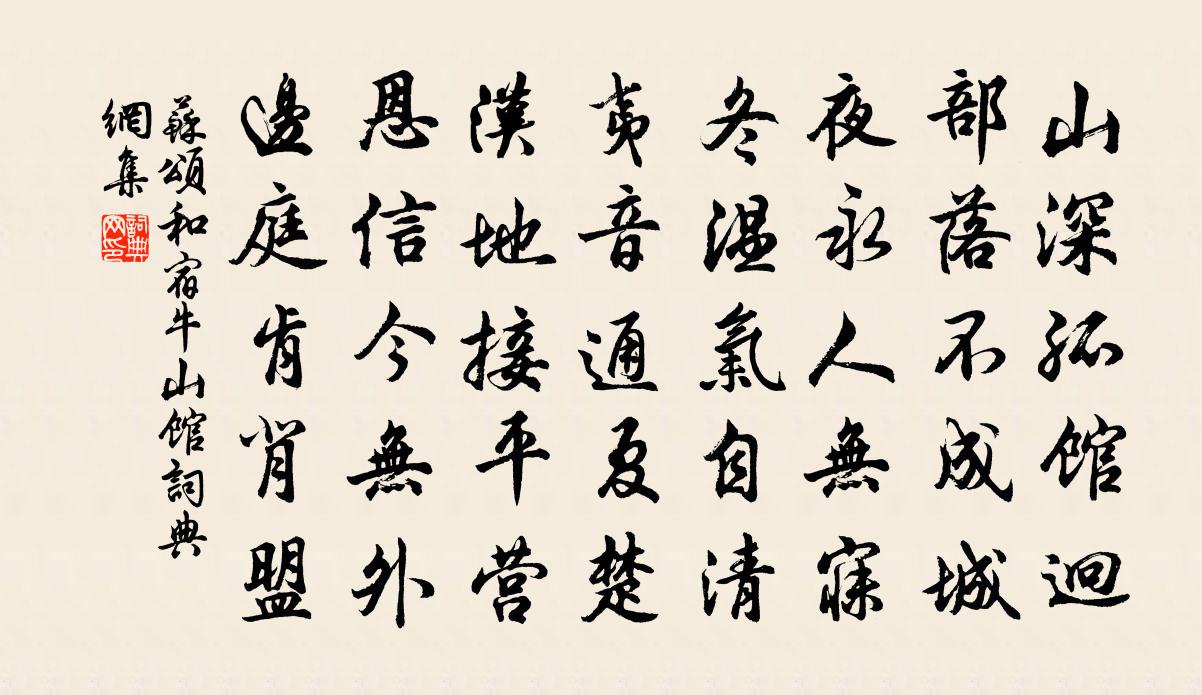 山深孤館迥
部落不成城
夜永人無寐
冬温氣自清
夷音通夏楚
漢地接平营
恩信今無外
邊庭肯背盟
蘇頌和宿牛山館詞典
網集
詞典
网印